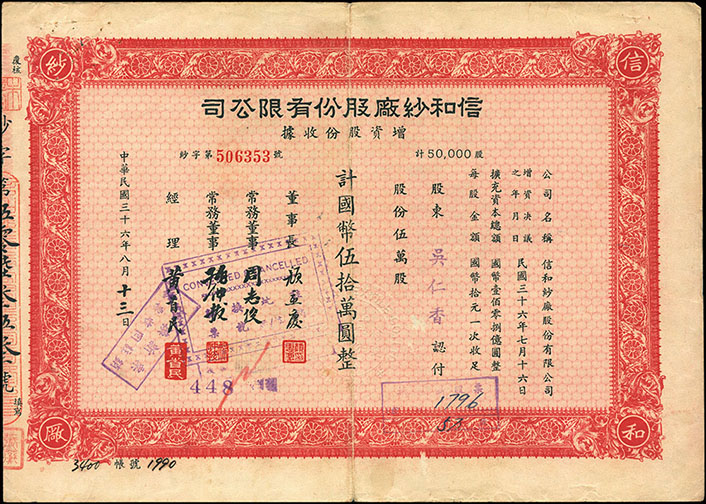 信和紗廠股份有限公司
增資股份收據
計50,000股
紗字第506353號
公司名稱 信和紗廠股份有限公司
增資決議之年月日 民國三十六年七月十六日
擴充資本總額 國幣壹佰零捌億圓整
每股金額 國幣拾元一次收足
股東 吳仁香 認付
股份伍萬股
計國幣伍拾萬圓整
董事長
常務董事 周志俊
常務董事
經理
中華民國三十六年八月十三日
CANCELLED
448
1796
3400 帳號 1990
信
和
紗
廠
覆核
填寫